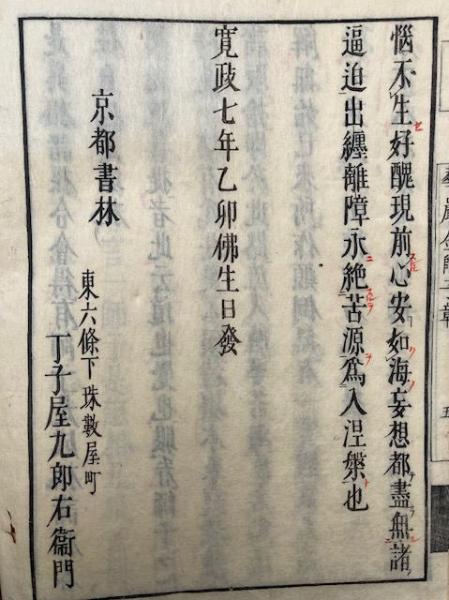 惱不生好醜現前心安如海妄想都盡無諸
逼迫出纏離障永絶苦源爲入涅槃也
寛政七年乙卯佛生日發
京都書林
東六條下珠數屋町
丁子屋九郎右衞門